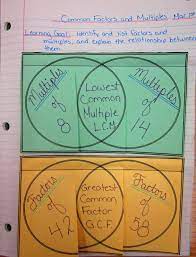 Common Factors and Multiples Mar.
Learning Goal: Identify and list factors and
multiples, and explain the relationship between
them.
Multiples
of
8
Lowest
Common
Multiple
L.C.M.
Multiples
of
14
Factors
of
42
Greatest
Common
Factor
G.C.F.
Factors
of